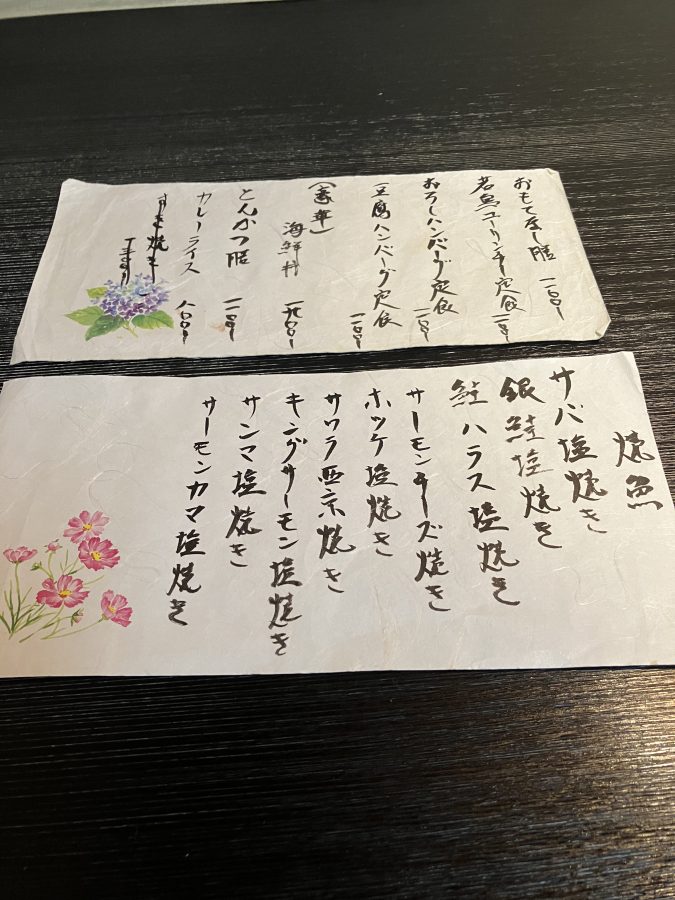 おもてなし膳 一一〇〇
若鳥ユーリンチー定食 一一〇〇
おろしハンバーグ定食 一一〇〇
豆腐ハンバーグ定食 一一〇〇
(豪華)
海鮮丼 一九〇〇
とんかつ膳 一一〇〇
カレーライス 八〇〇
すき焼き
焼魚
サバ塩焼き
銀鮭塩焼き
鮭ハラス塩焼き
サーモンチーズ焼き
ホッケ塩焼き
サワラ西京焼き
キングサーモン塩焼き
サンマ塩焼き
サーモンカマ塩焼き